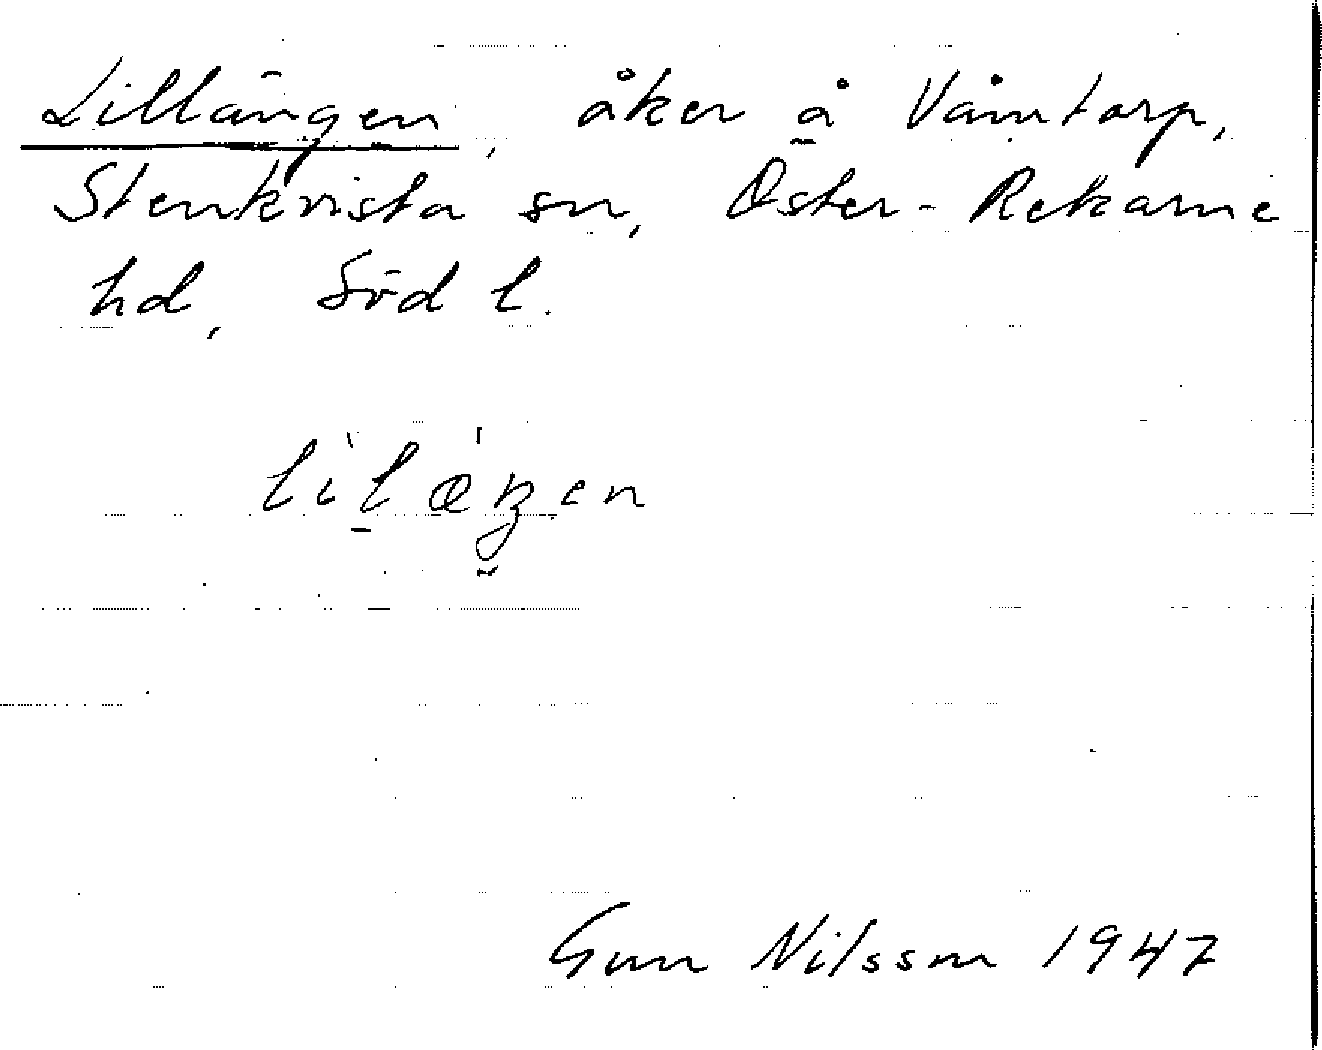 Lillängen, åker å Våmtorp,
Stenkvista sn, Öster-Rekarne
hd, Söd l.
lìlǽŋen
Gun Nilsson 1947